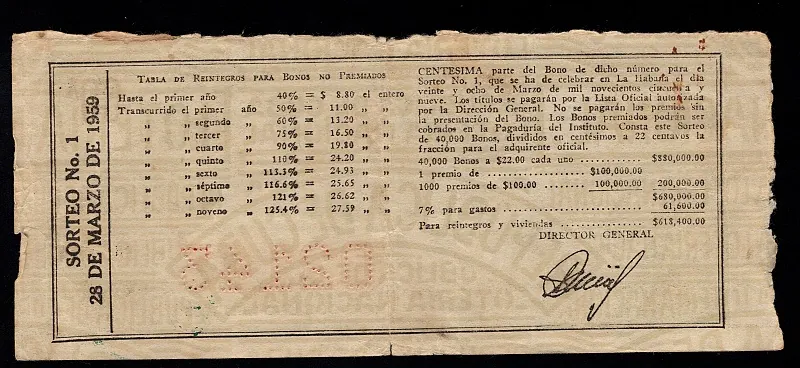 SORTEO No. 1
28 DE MARZO DE 1959
TABLA DE REINTEGROS PARA BONOS NO PREMIADOS
Hasta el primer año 40% = $ 8.80 el entero
Transcurrido el primer año 50% = 11.00 „ „
„ „ segundo „ 60% = 13.20 „ „
„ „ tercer „ 75% = 16.50 „ „
„ „ cuarto „ 90% = 19.80 „ „
„ „ quinto „ 110% = 24.20 „ „
„ „ sexto „ 113.3% = 24.93 „ „
„ „ séptimo „ 116.6% = 25.65 „ „
„ „ octavo „ 121% = 26.62 „ „
„ „ noveno „ 125.4% = 27.59 „ „
CENTESIMA parte del Bono de dicho número para el
Sorteo No. 1, que se ha de celebrar en La Habana el día
veinte y ocho de Marzo de mil novecientos cincuenta y
nueve. Los títulos se pagarán por la Lista Oficial autorizada
por la Dirección General. No se pagarán los premios sin
la presentación del Bono. Los Bonos premiados podrán ser
cobrados en la Pagaduría del Instituto. Consta este Sorteo
de 40,000 Bonos, divididos en centésimos a 22 centavos la
fracción para el adquirente oficial.
40,000 Bonos a $22.00 cada uno ............ $880,000.00
1 premio de .................. $100,000.00
1000 premios de $100.00 ....... 100,000.00 200,000.00
$680,000.00
7% para gastos ........................... 61,600.00
Para reintegros y viviendas ................ $618,400.00
DIRECTOR GENERAL